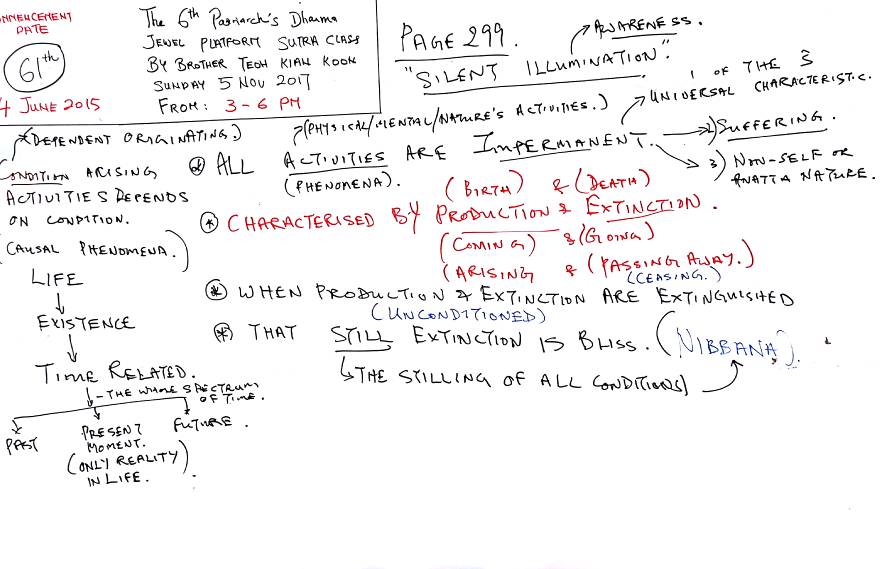 COMMENCEMENT
DATE
61th
4 JUNE 2015
The 6th Patriarch's Dharma
JEWEL PLATFORM SUTRA CLASS
BY BROTHER TEOH KIAN KOON
SUNDAY 5 NOV 2017
FROM: 3-6 PM
PAGE 299.
"SILENT ILLUMINATION".
AWARENESS.
1 OF THE 3
UNIVERSAL CHARACTERISTIC.
(PHYSICAL/MENTAL/NATURE'S ACTIVITIES.)
* ALL ACTIVITIES ARE IMPERMANENT.
(PHENOMENA).
2) SUFFERING.
3) NON-SELF OR
ANATTA NATURE.
(BIRTH) & (DEATH)
* CHARACTERISED BY PRODUCTION & EXTINCTION.
(COMING) & (GOING)
(ARISING & (PASSING AWAY.)
(CEASING.)
* WHEN PRODUCTION & EXTINCTION ARE EXTINGUISHED
(UNCONDITIONED)
* THAT STILL EXTINCTION IS BLISS. (NIBBANA).
THE STILLING OF ALL CONDITIONS)
(*DEPENDENT ORIGINATING.)
CONDITION ARISING
ACTIVITIES DEPENDS
ON CONDITION.
(CAUSAL PHENOMENA.)
LIFE
EXISTENCE
TIME RELATED.
- THE WHOLE SPECTRUM
OF TIME.
PAST
PRESENT
MOMENT.
(ONLY REALITY)
IN LIFE.
FUTURE.